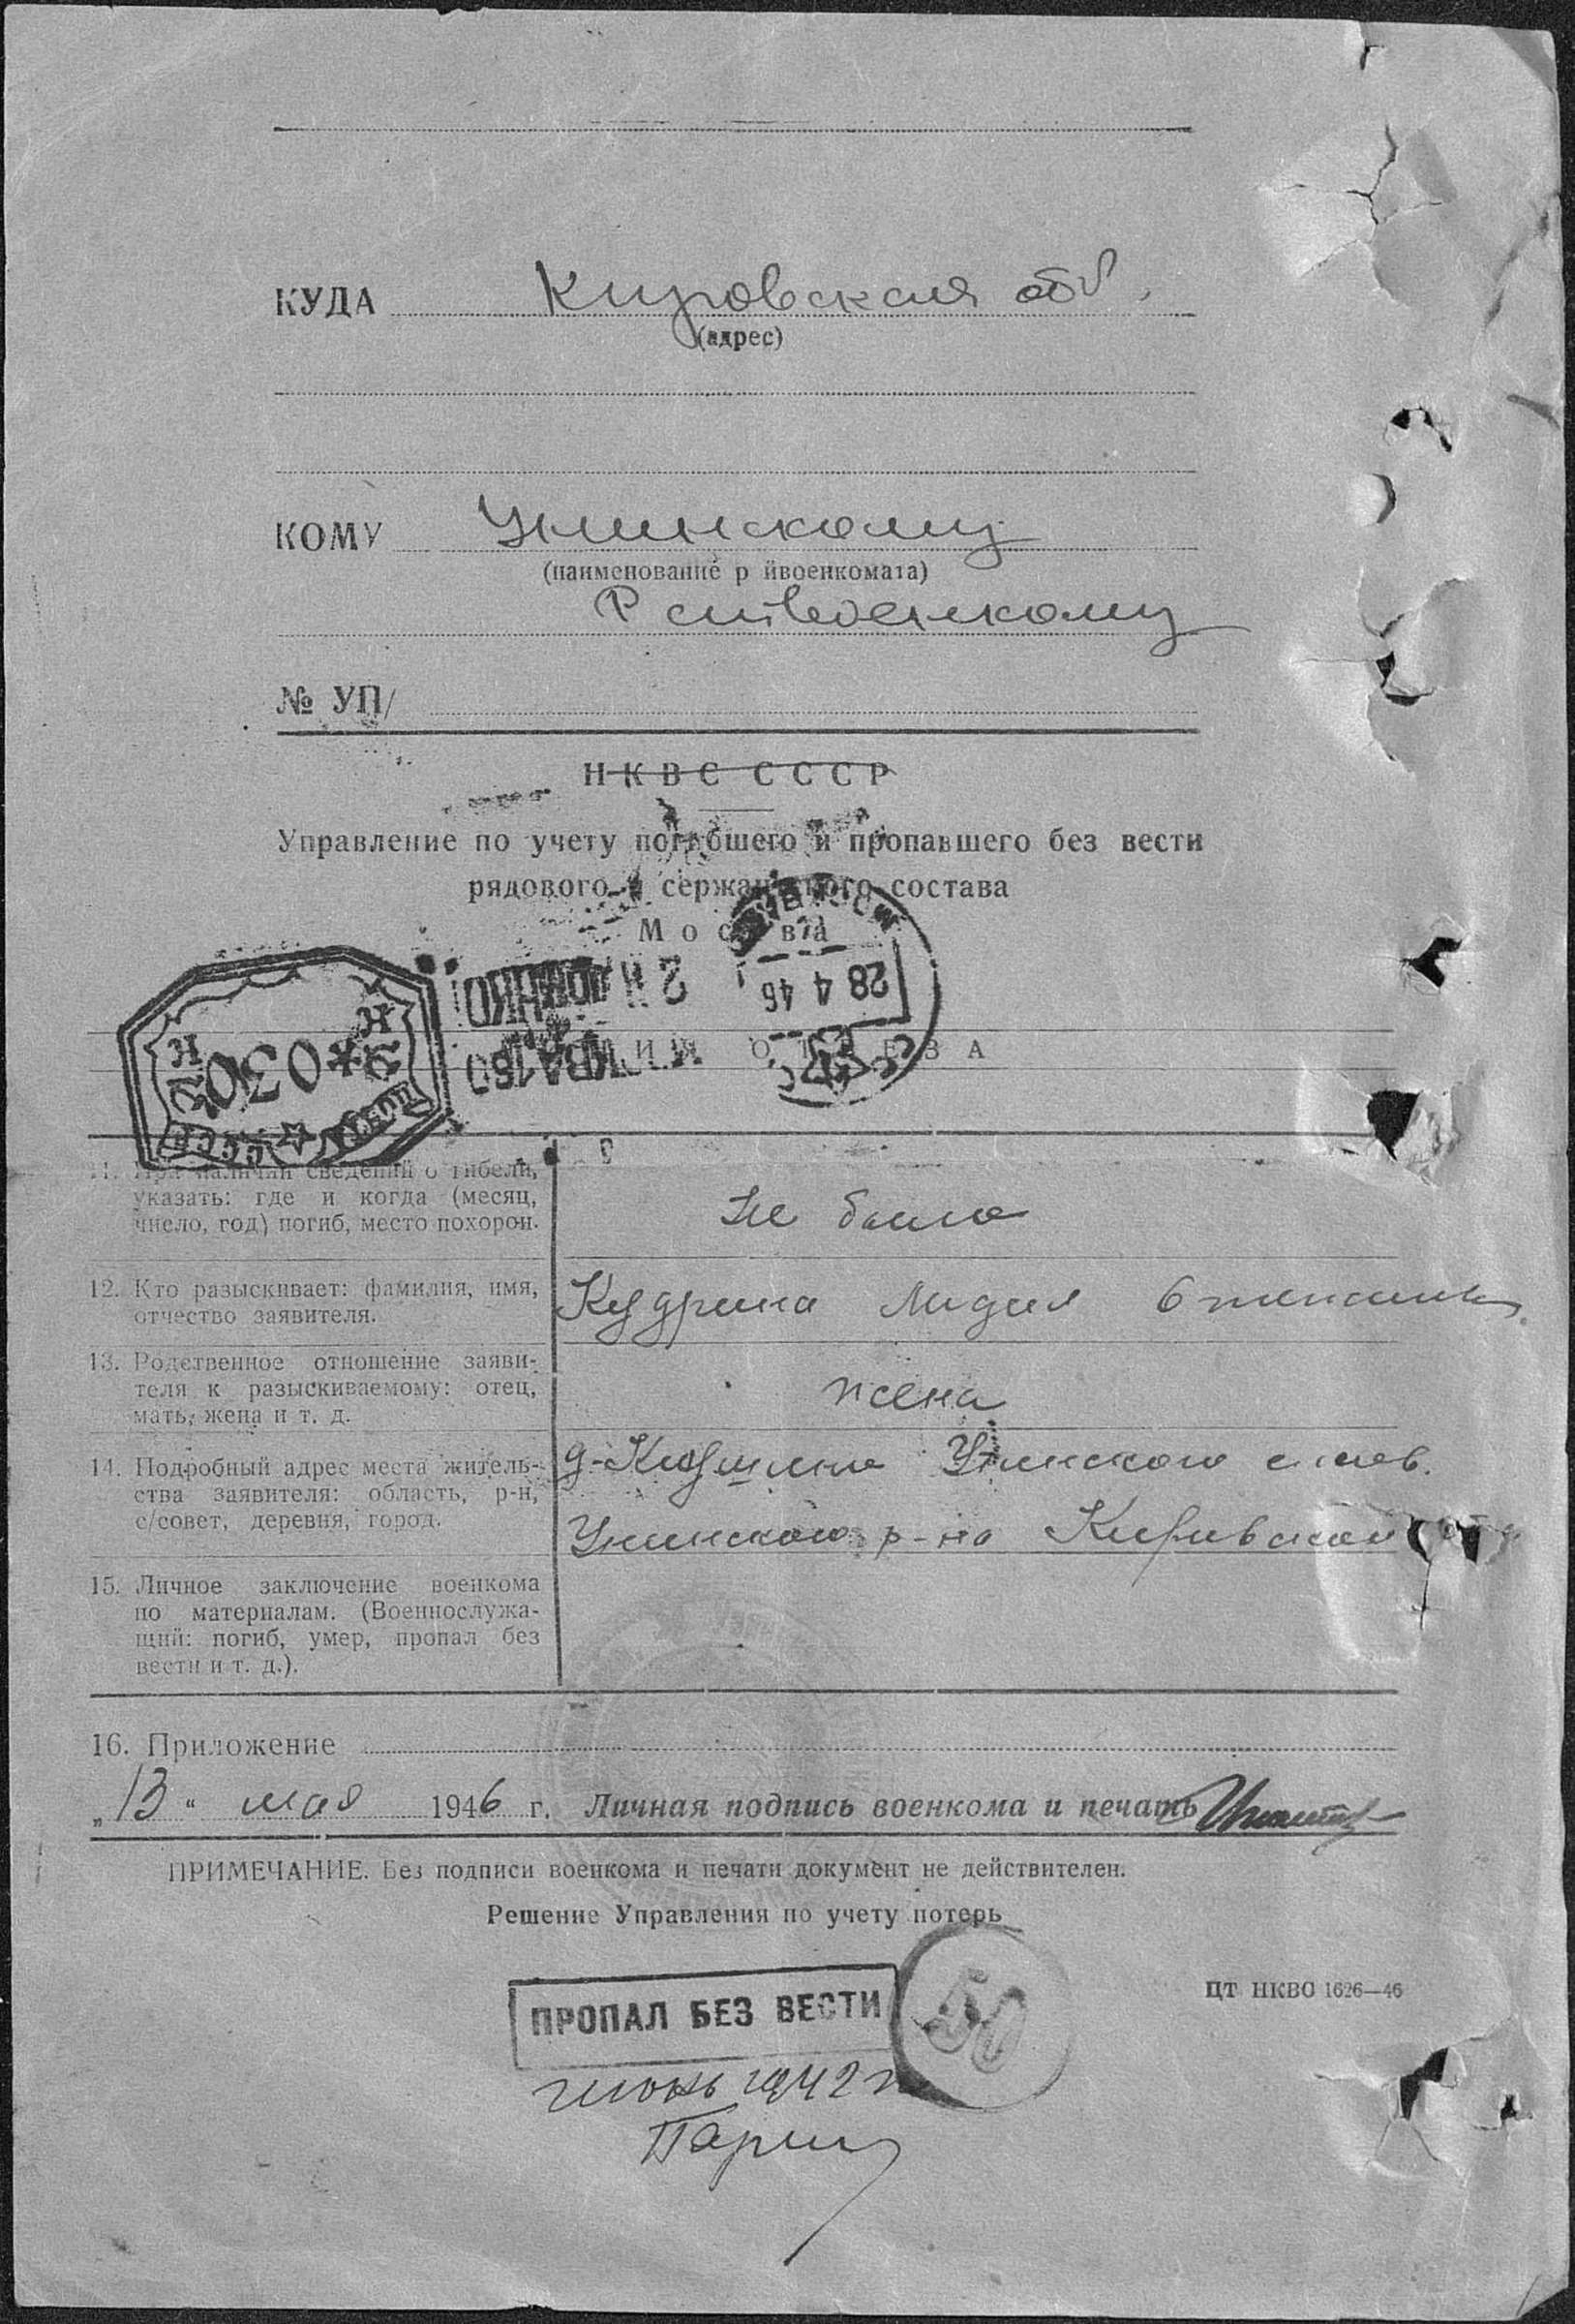 КУДА Кировская обл.
(адрес)
КОМУ Унинскому
(наименование р йвоенкомата)
Райвоенкому
№ УП/
НКВС СССР
Управление по учету погибшего и пропавшего без вести
рядового и сержантского состава
Москва
28 4 46
МОСКВА
ПОЧТА СССР
11. При наличии сведений о гибели,
указать: где и когда (месяц,
число, год) погиб, место похорон.
Не было
12. Кто разыскивает: фамилия, имя,
отчество заявителя.
Кудрина Лидия
13. Родственное отношение заяви-
теля к разыскиваемому: отец,
мать, жена и т. д.
жена
14. Подробный адрес места житель-
ства заявителя: область, р-н,
с/совет, деревня, город.
д- Унинского
Унинского р-на Кировской обл
15. Личное заключение военкома
по материалам. (Военнослужа-
щий: погиб, умер, пропал без
вести и т. д.).
16. Приложение
„13“ мая 1946 г. Личная подпись военкома и печать
ПРИМЕЧАНИЕ. Без подписи военкома и печати документ не действителен.
Решение Управления по учету потерь
ЦТ НКВО 1626—46
ПРОПАЛ БЕЗ ВЕСТИ
50
июнь 1942 г